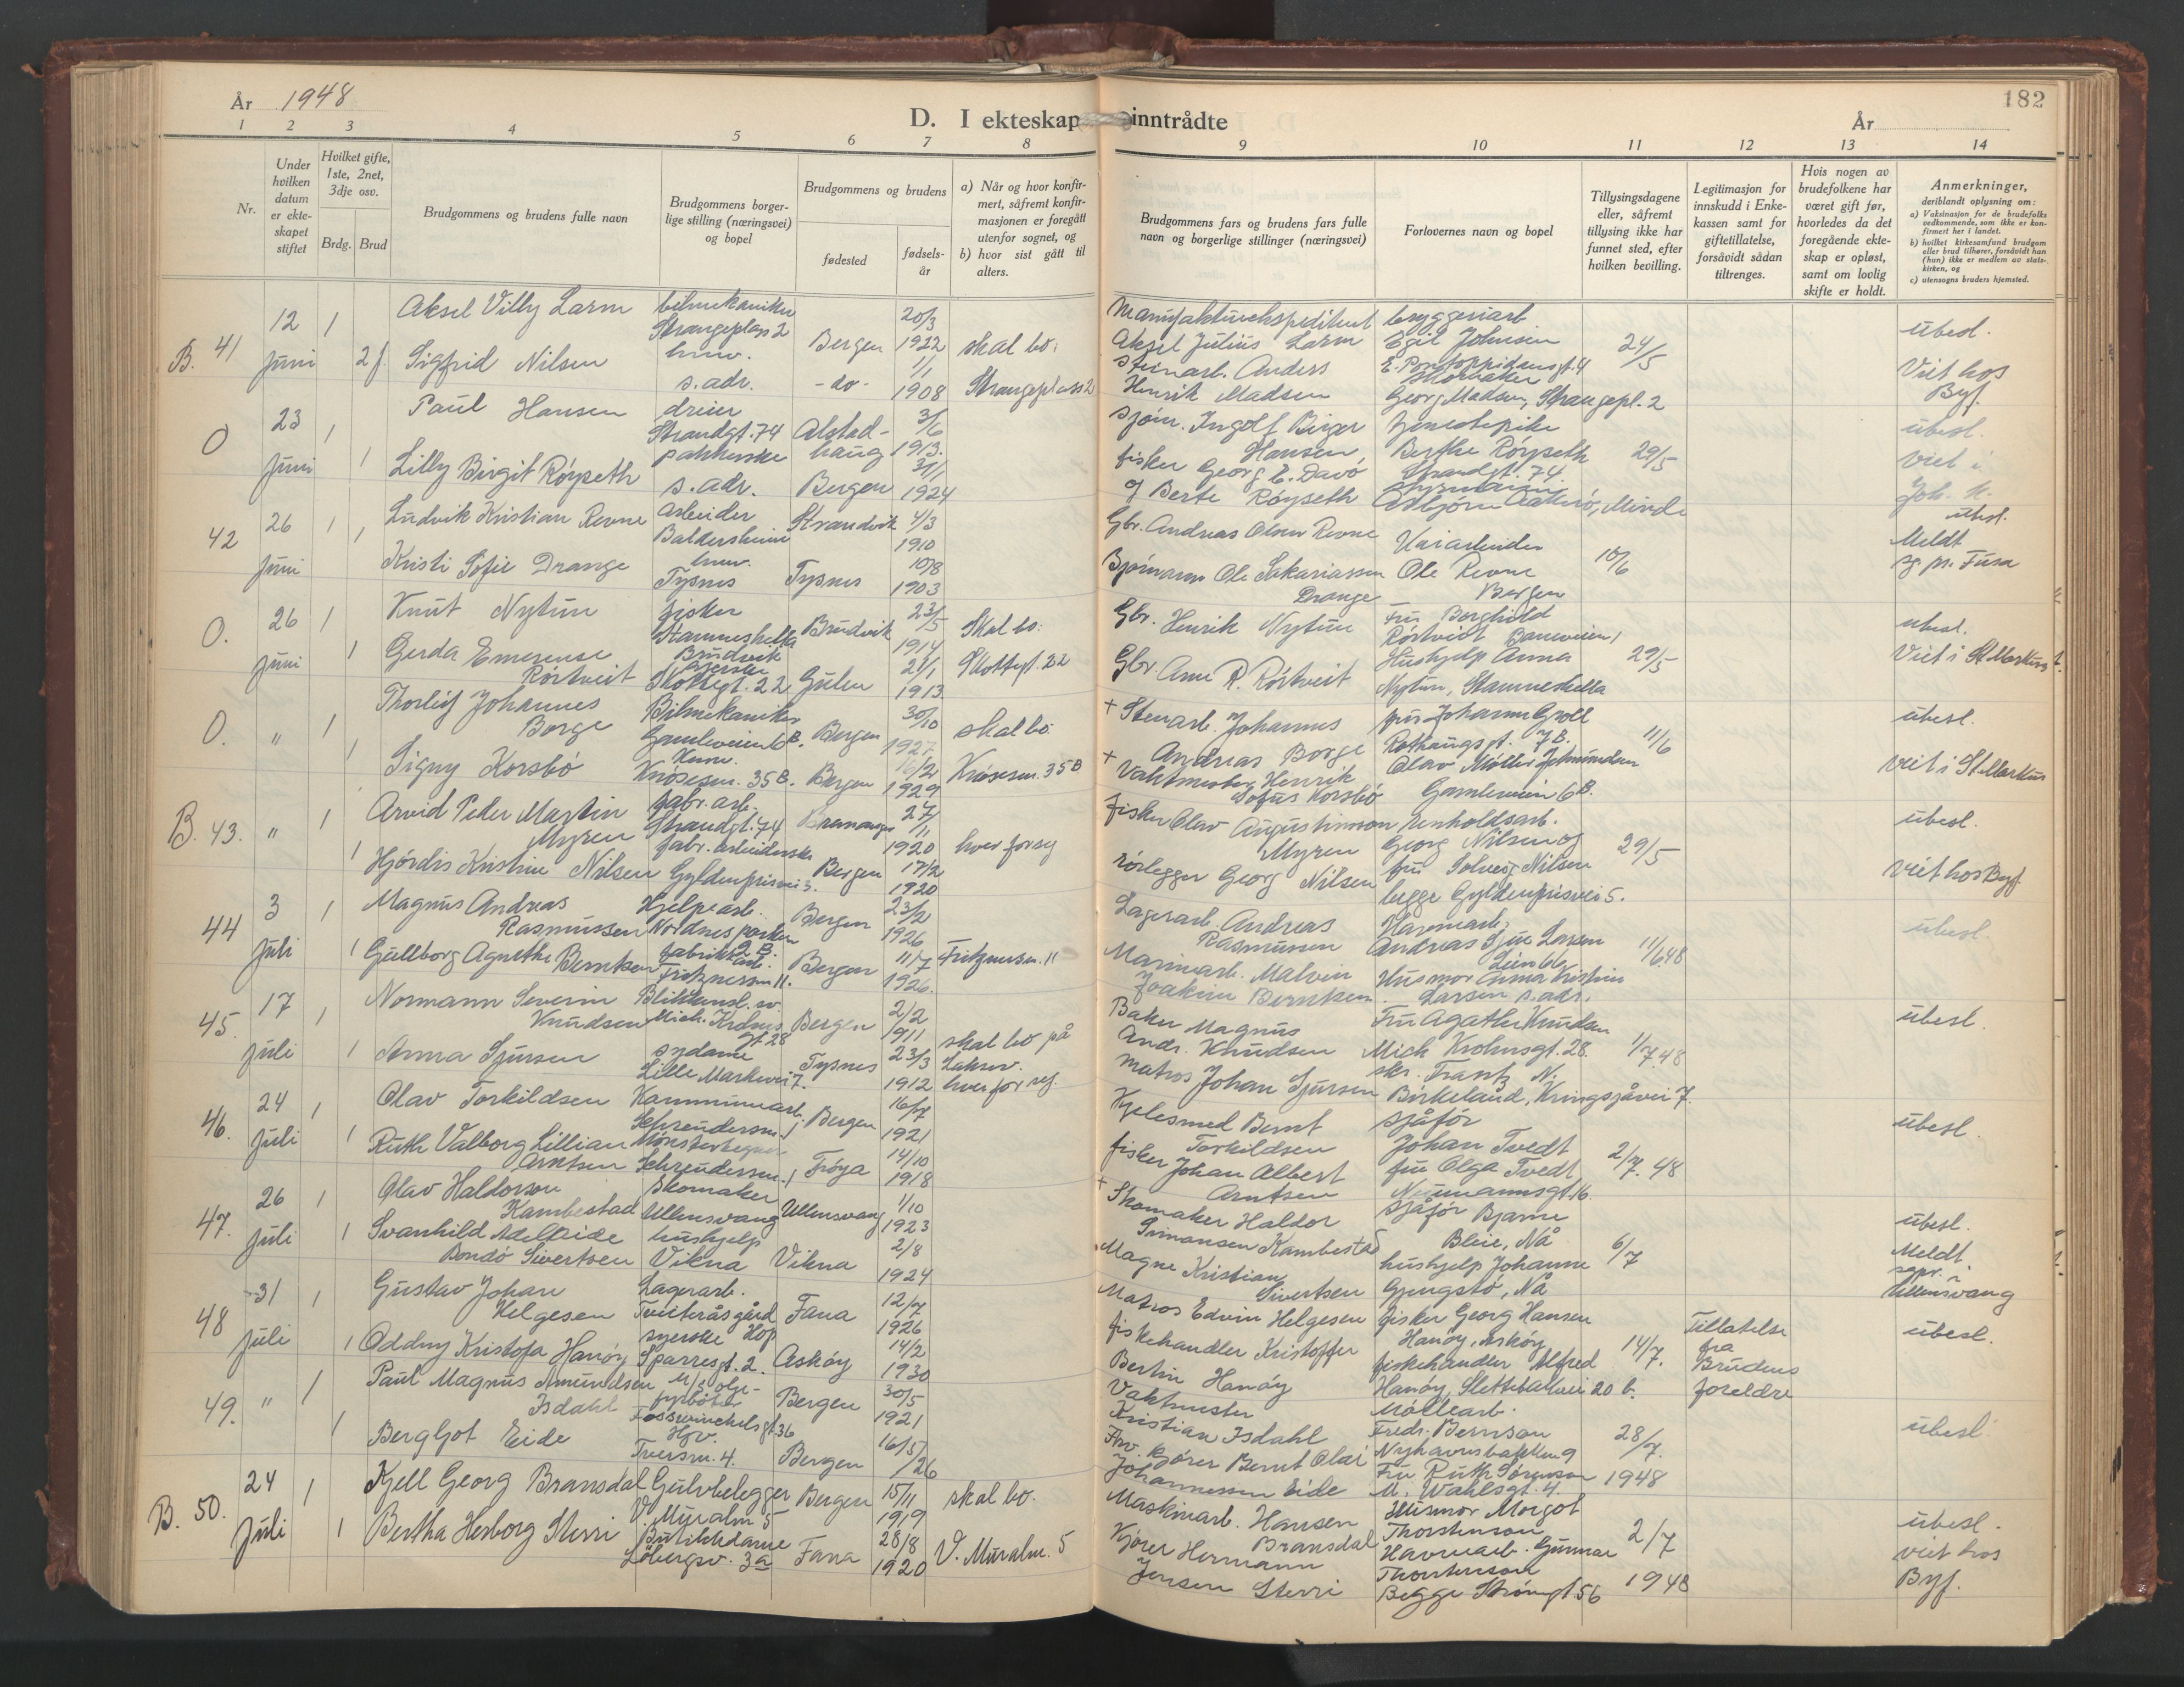 År 1948
D. I ekteskap inntrådte
182
År
1 2 3 4 5 6 7 8 9 10 11 12 13 14
Nr.
Under hvilken datum er ekteskapet stiftet
Hvilket gifte, 1ste, 2net, 3dje osv.
Brdg. Brud
Brudgommens og brudens fulle navn
Brudgommens borgerlige stilling (næringsvei) og bopel
Brudgommens og brudens
fødested
fødselsår
a) Når og hvor konfirmert, såfremt konfirmasjonen er foregått utenfor sognet, og
b) hvor sist gått til alters.
Brudgommens fars og brudens fars fulle navn og borgerlige stillinger (næringsvei)
Forlovernes navn og bopel
Tillysingsdagene eller, såfremt tillysing ikke har funnet sted, efter hvilken bevilling.
Legitimasjon for innskudd i Enkekassen samt for giftetillatelse, forsåvidt sådan tiltrenges.
Hvis nogen av brudefolkene har været gift før, hvorledes da det foregående ekteskap er opløst, samt om lovlig skifte er holdt.
Anmerkninger, deriblandt oplysning om:
a) Vaksinasjon for de brudefolks vedkommende, som ikke er konfirmert her i landet.
b) hvilket kirkesamfund brudgom eller brud tilhører, forsåvidt han (hun) ikke er medlem av statskirken, og
c) utensogns bruders hjemsted.
B. 41 12 Juni 1 2 f.
Aksel Villy Larm bilmekaniker Strangeplass 2 Bergen 20/3 1922 skal bo:
Sigfrid Nilsen hmv. s. adr. - do - 1/1 1908 Strangeplass 2
Manufakturekspeditent Aksel Julius Larm
Steinarb. Anders Henrik Madsen
bryggeriarb Egil Johnsen E. Pontoppidansgt. 4
Skomaker Georg Madsen, Strangepl. 2
24/5
ubesl. Viet hos Byf.
O 23 Juni 1 1
Paul Hansen dreier Strandgt. 74 Alstadhaug 3/6 1913.
Lilly Birgit Röyseth pakkerske s. adr. Bergen 31/1 1924
Sjöm. Ingolf Birger Hansen,
fisker Georg E. Davö og Berte Röyseth
Berthe Röyseth Strandgt. 74
Asbjörn Aakerö, Minde
29/5
ubesl. viet i Joh. k.
42 26 Juni 1 1
Ludvik Kristian Revne arbeider Baldersheim Strandvik 4/3 1910
Kristi Sofie Drange hmv. Tysnes Tysnes 10/8 1903
Gbr. Andreas Olsen Revne
Ole Sakariassen Drange
Ole Revne Bergen
10/6
ubesl. Meldt sg. pr. Fusa
O. 26 Juni 1 1
Knut Nytun fisker Stamneshella Brudvik Brudvik 23/5 1914 Skal bo:
Gerda Emerense Rörtveit Skottegt. 22 Gulen 21/1 1913 Skottegt. 22
Gbr. Henrik Nytun
Gbr Arne R. Rörtveit
Fru Borghild Rörtveit Baneveien 1
Hushjelp Anna Nytun, Stamneshella
29/5
ubesl. Viet i St. Markus k.
O. " 1 1
Thorleif Johannes Borge Bilmekaniker Gamleveien 6 B. Bergen 30/10 1927 skal bo:
Signy Korsbö Knøsesm. 35 B. Bergen 16/2 1929 Knøsesm. 35 B
+ Stenarb. Johannes Andreas Borge
+ Vaktmester Henrik Sofus Korsbö
fru Johanne Groll Rothaugsgt. 7 B.
Olav Möller Gamleveien 6 B.
11/6
ubesl. viet i St. Markus
B. 43. " 1 1
Arvid Peder Martin Myren fabr. arb. Strandgt. 74 27/11 1920 hver for seg
Hjördis Kristine Nilsen fabr. arbeiderske Gyldenprisvei 5. Bergen 17/2 1920
fisker Olav Augustinson Myren
rörlegger Georg Nilsen
renholdsarb. Georg Nilsen og fru Solveig Nilsen
begge Gyldenprisvei 5.
29/5
ubesl. viet hos Byf.
44 3 Juli 1 1
Magnus Andreas Rasmussen Hjelpearb. Nordnesparken 2 B. Bergen 23/2 1926
Gullborg Agnethe Berntsen fabrikkarb. Fritznersm. 11. Bergen 11/7 1926. Fritznersm. 11
Lagerarb. Andreas Rasmussen
Marinearb. Malvin Joakim Berntsen
Havnearb. Andreas Sjue Larsen
Husmor Anna Kristine Larsen s. adr.
11/6 48
ubesl.
45. 17 Juli 1 1
Normann Severin Knudsen Blikkensl. sv. Mich. Krohns gt 28 Bergen 2/2 1911 skal bo på Laksev.
Anna Sjursen sydame Lille Markevei 7. Tysnes 23/3 1912 hver for seg.
Baker Magnus Andr. Knudsen
Matros Johan Sjursen
Fru Agathe Knudsen Mich Krohnsgt. 28.
skr. Frantz N. Birkeland, Kringsjåvei 7.
1/7. 48
ubesl.
46. 24 Juli 1 1
Olav Torkildsen Kommunearb. Schreudersm. 1 Bergen 16/7 1921
Ruth Valborg Lillian Arntsen Mönstertegner Schreudersm. 1 Fröya 14/10 1918
Kjelesmed Bernt Torkildsen
fisker Johan Albert Arntsen
Sjåför Johan Tvedt
fru Olga Tvedt Neumannsgt. 16.
2/7. 48
ubesl.
47. 26 Juli 1 1
Olav Haldorson Kambestad Skomaker Ullensvang Ullensvang 1/10 1923
Svanhild Adelleide Bondö Sivertsen hushjelp Vikna Vikna 2/8 1924
+ Skomaker Haldor Simonsen Kambestad
Magne Kristian Sivertsen
Sjåför Bjarne Bleie, Nå
hushjelp Johanne Gjengstö, Nå
6/7
ubesl. Meldt sopr. i Ullensvang
48 31 Juli 1 1
Gustav Johan Helgesen Lagerarb. Tveiteråsgård Hop Fana 12/7 1926
Oddny Kristofa Hanöy syerske Sparresgt. 2. Asköy 14/2 1930
Matros Edvin Helgesen
fiskehandler Kristoffer Bertin Hanöy
fisker Georg Hansen Hanöy, Asköy
fiskehandler Alfred Hanöy, Slettebakvei 20 b.
14/7.
Tillatelse fra Brudens foreldre
ubesl.
49. " 1 1
Paul Magnus Amundsen Isdahl fyrböter Fosswinckelsgt 36 Bergen 30/5 1921
Bergljot Eide Hgv. Tversm. 4. Bergen 16/5 /26
Vaktmester Kristian Isdahl
Arv. kjörer Bernt Olai Johannessen Eide
Möllearb. Fredr. Berntsen Nyhavnsbakken 9
Fru Ruth Sörensen M. Wahlsgt. 4.
28/7. 1948
ubesl.
B. 50. 24 Juli 1 1
Kjell Georg Bransdal Gulvbelegger V. Muralm 5 Bergen 15/11 1919 skal bo.
Bertha Herborg Sterri Butikkdame Löbergsv. 3a Fana 28/8 1920 V. Muralm. 5
Maskinarb. Hansen Bransdal
Kjörer Hermann Jensen Sterri
Husmor Margot Thorstensen
Havnearb. Gunnar Thorstensen
Begge Strömgt. 56
2/7 1948
ubesl. viet hos Byf.